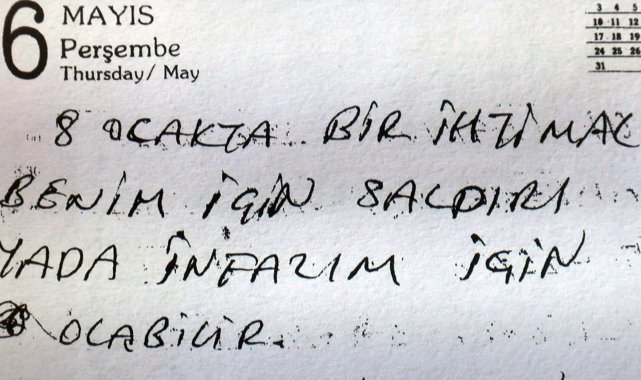 6 MAYIS
Perşembe
Thursday/ May
3 4 5
10 11 12
17 18 19
24 25 26
31
8 OCAKTA BİR İHTİMAL
BENİM İÇİN SALDIRI
YADA İNFAZIM İÇİN
OLABİLİR.